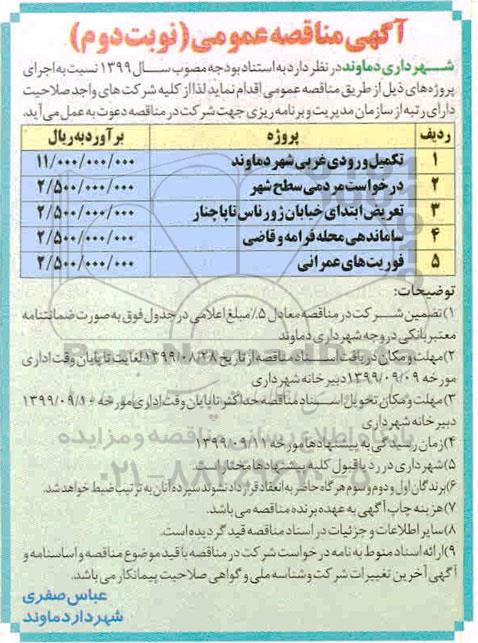 آگهی مناقصه عمومی (نوبت دوم)
شهرداری دماوند در نظر دارد به استناد بودجه مصوب سال ۱۳۹۹ نسبت به اجرای
پروژه های ذیل از طریق مناقصه عمومی اقدام نماید لذا از کلیه شرکت های واجد صلاحیت
دارای رتبه از سازمان مدیریت و برنامه ریزی جهت شرکت در مناقصه دعوت به عمل می آید.
ردیف پروژه برآورد به ریال
۱ تکمیل ورودی غربی شهر دماوند ۱۱/۰۰۰/۰۰۰/۰۰۰
۲ درخواست مردمی سطح شهر ۲/۵۰۰/۰۰۰/۰۰۰
۳ تعریض ابتدای خیابان ژورناس تا پاچنار ۲/۵۰۰/۰۰۰/۰۰۰
۴ ساماندهی محله فرامه و قاضی ۲/۵۰۰/۰۰۰/۰۰۰
۵ فوریت های عمرانی ۲/۵۰۰/۰۰۰/۰۰۰
توضیحات:
۱) تضمین شرکت در مناقصه معادل ۵٪ مبلغ اعلامی در جدول فوق به صورت ضمانتنامه
معتبر بانکی در وجه شهرداری دماوند
۲) مهلت و مکان دریافت اسناد مناقصه از تاریخ ۱۳۹۹/۰۸/۲۸ لغایت تا پایان وقت اداری
مورخه ۱۳۹۹/۰۹/۰۹ دبیرخانه شهرداری
۳) مهلت و مکان تحویل اسناد مناقصه حداکثر تا پایان وقت اداری مورخه ۱۳۹۹/۰۹/۱۰
دبیرخانه شهرداری
۴) زمان رسیدگی به پیشنهادها مورخه ۱۳۹۹/۰۹/۱۱
۵) شهرداری در رد یا قبول کلیه پیشنهادها مختار است.
۶) برندگان اول و دوم و سوم هرگاه حاضر به انعقاد قرارداد نشوند سپرده آنان به ترتیب ضبط خواهد شد.
۷) هزینه چاپ آگهی به عهده برنده مناقصه می باشد.
۸) سایر اطلاعات و جزئیات در اسناد مناقصه قید گردیده است.
۹) ارائه اسناد منوط به نامه درخواست شرکت در مناقصه با قید موضوع مناقصه و اساسنامه و
آگهی آخرین تغییرات شرکت و شناسه ملی و گواهی صلاحیت پیمانکار می باشد.
عباس صفری
شهردار دماوند